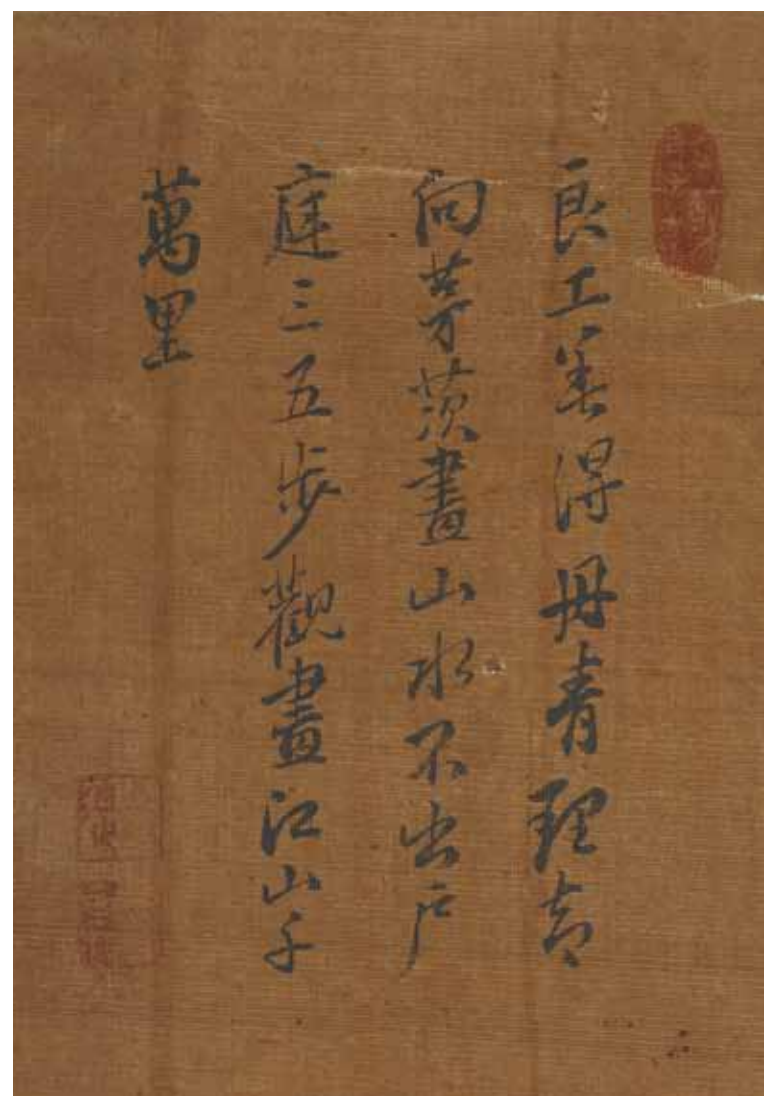 良工善得丹青理輒
向茅茨畫山水不出戶
庭三五步觀畫江山千
萬里